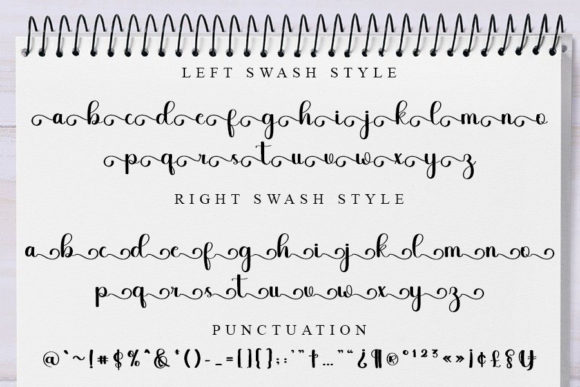 LEFT SWASH STYLE
a b c d e f g h i j k l m n o
p q r s t u v w x y z
RIGHT SWASH STYLE
a b c d e f g h i j k l m n o
p q r s t u v w x y z
PUNCTUATION
@`~!#$%^&*()-_={}[]:;'"†…"“¿¶®°¹²³«»¡¢£§¥